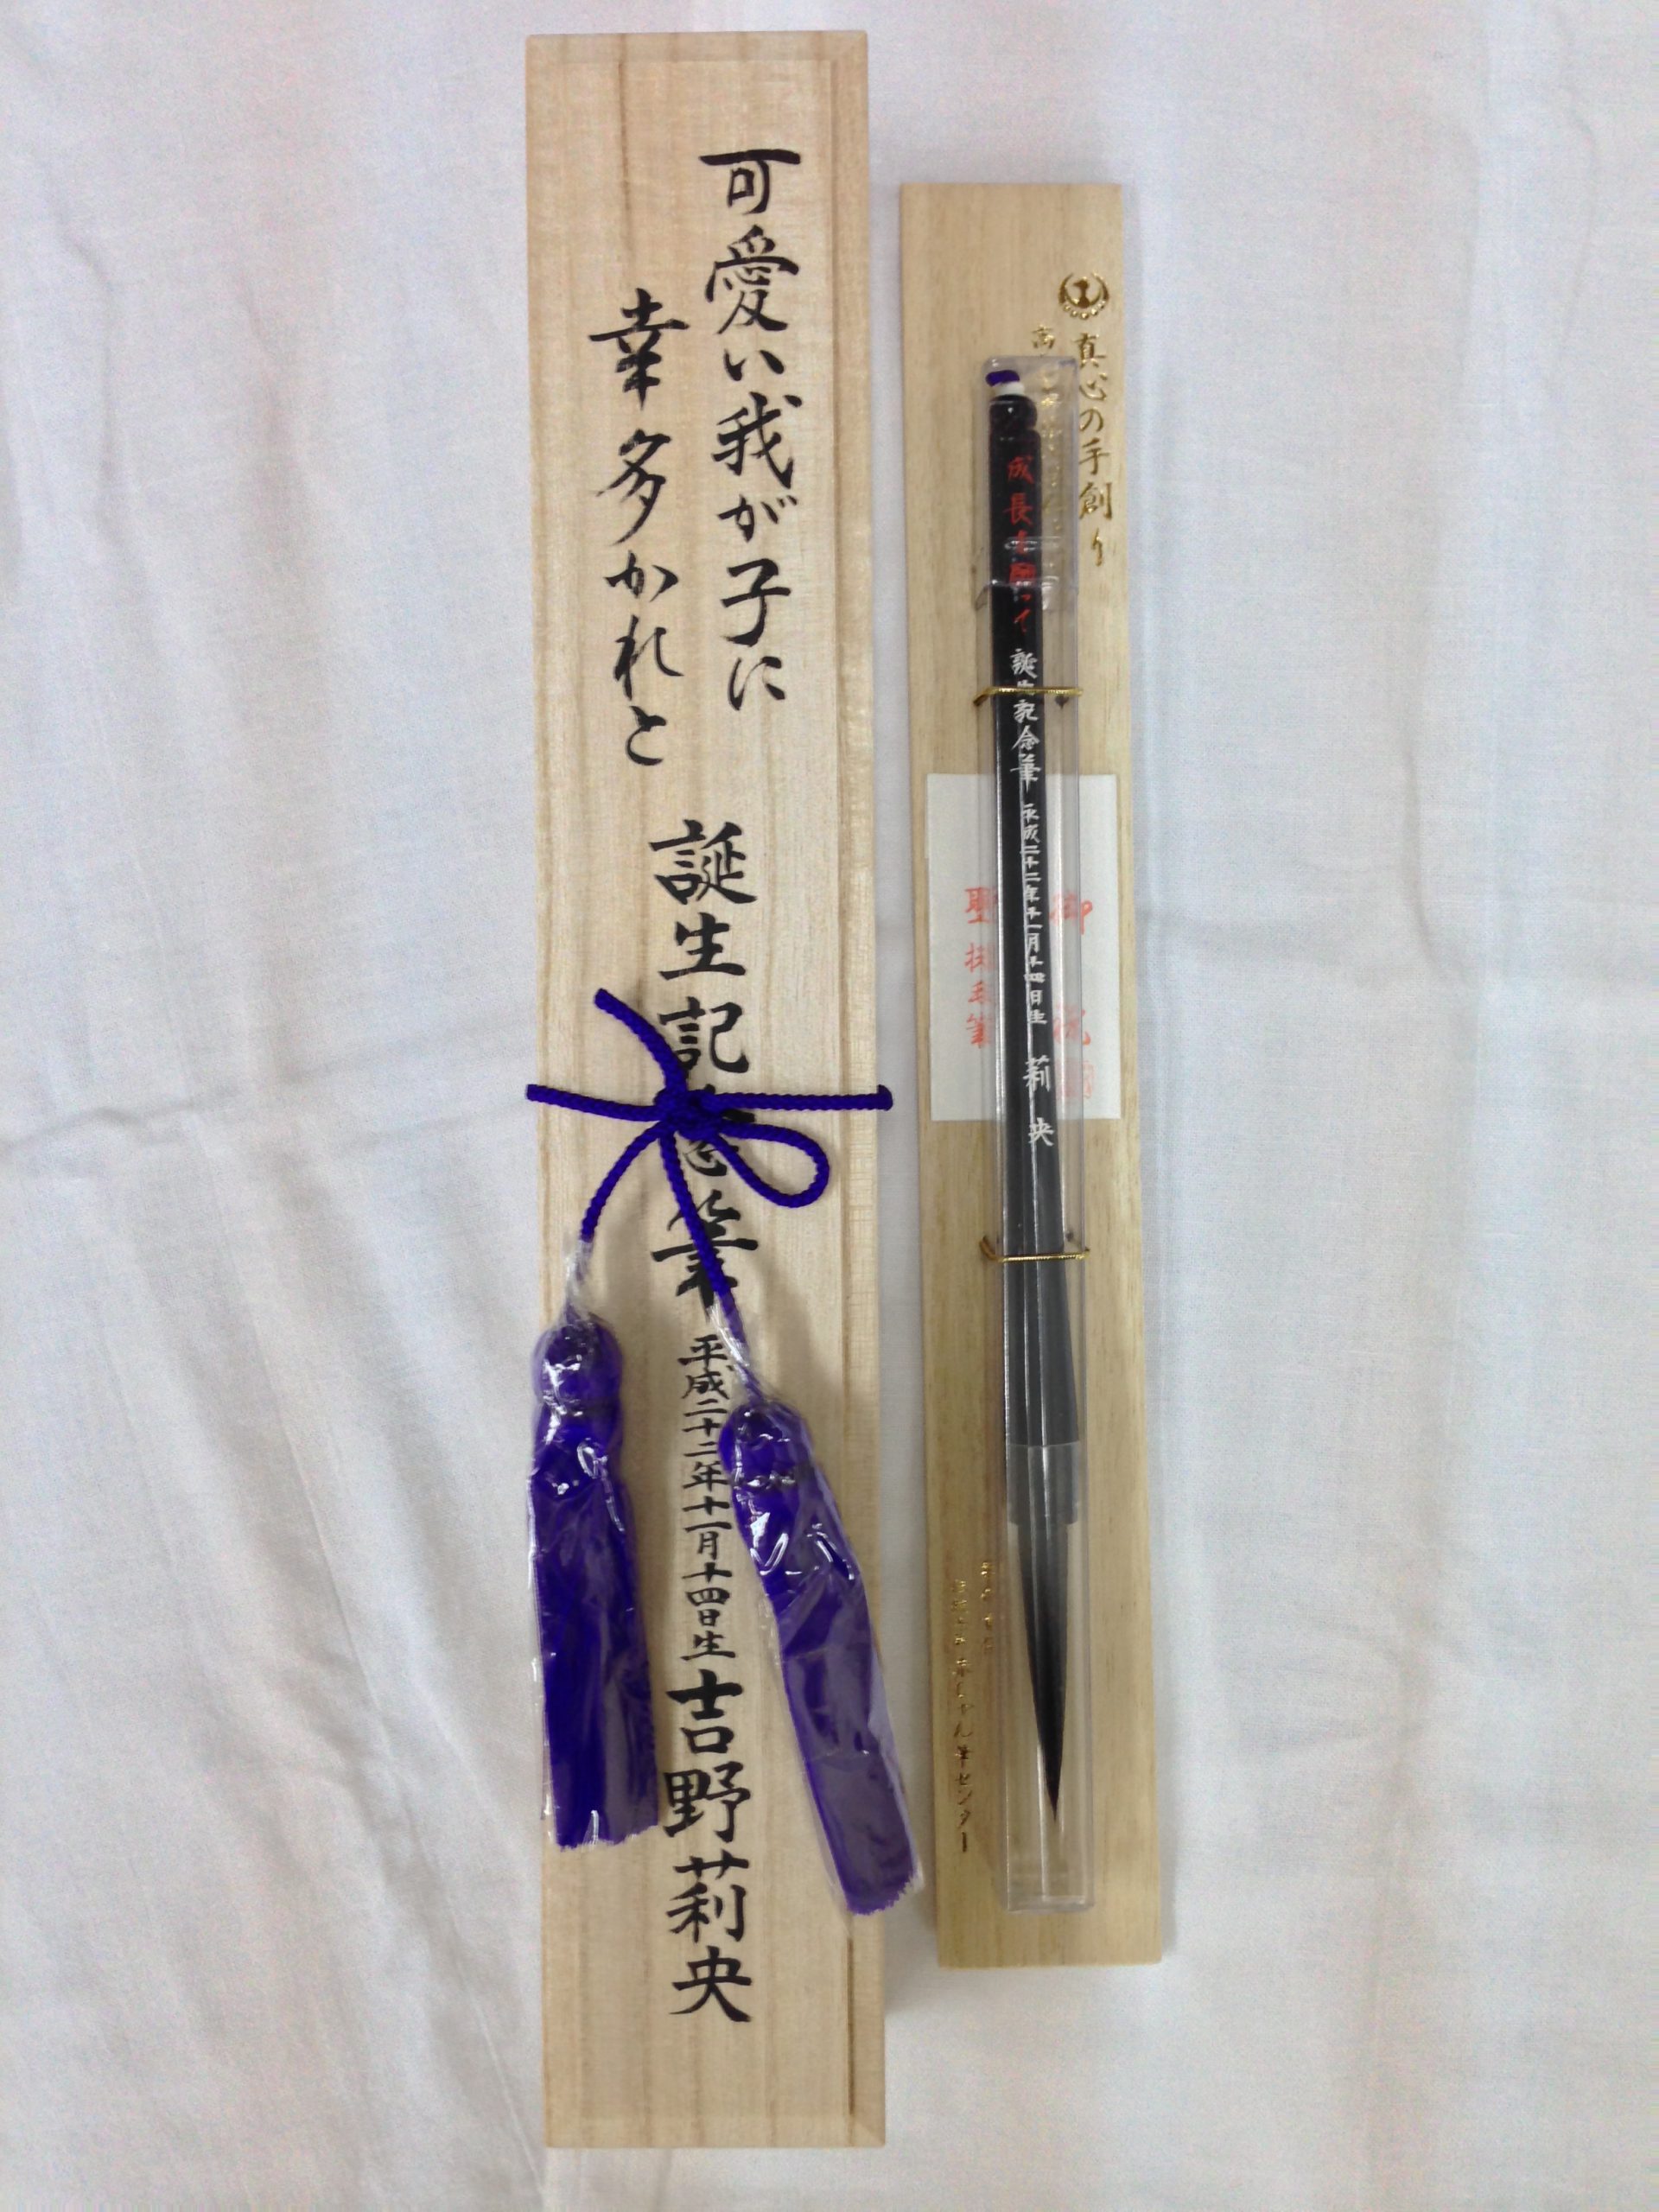 可愛い我が子に
幸多かれと
誕生記念筆
平成二十二年十一月十四日生
吉野莉央
真心の手創り
成長を願って
誕生記念筆
平成二十二年十一月十四日生
莉央
御祝
毛筆
赤ちゃん筆センター